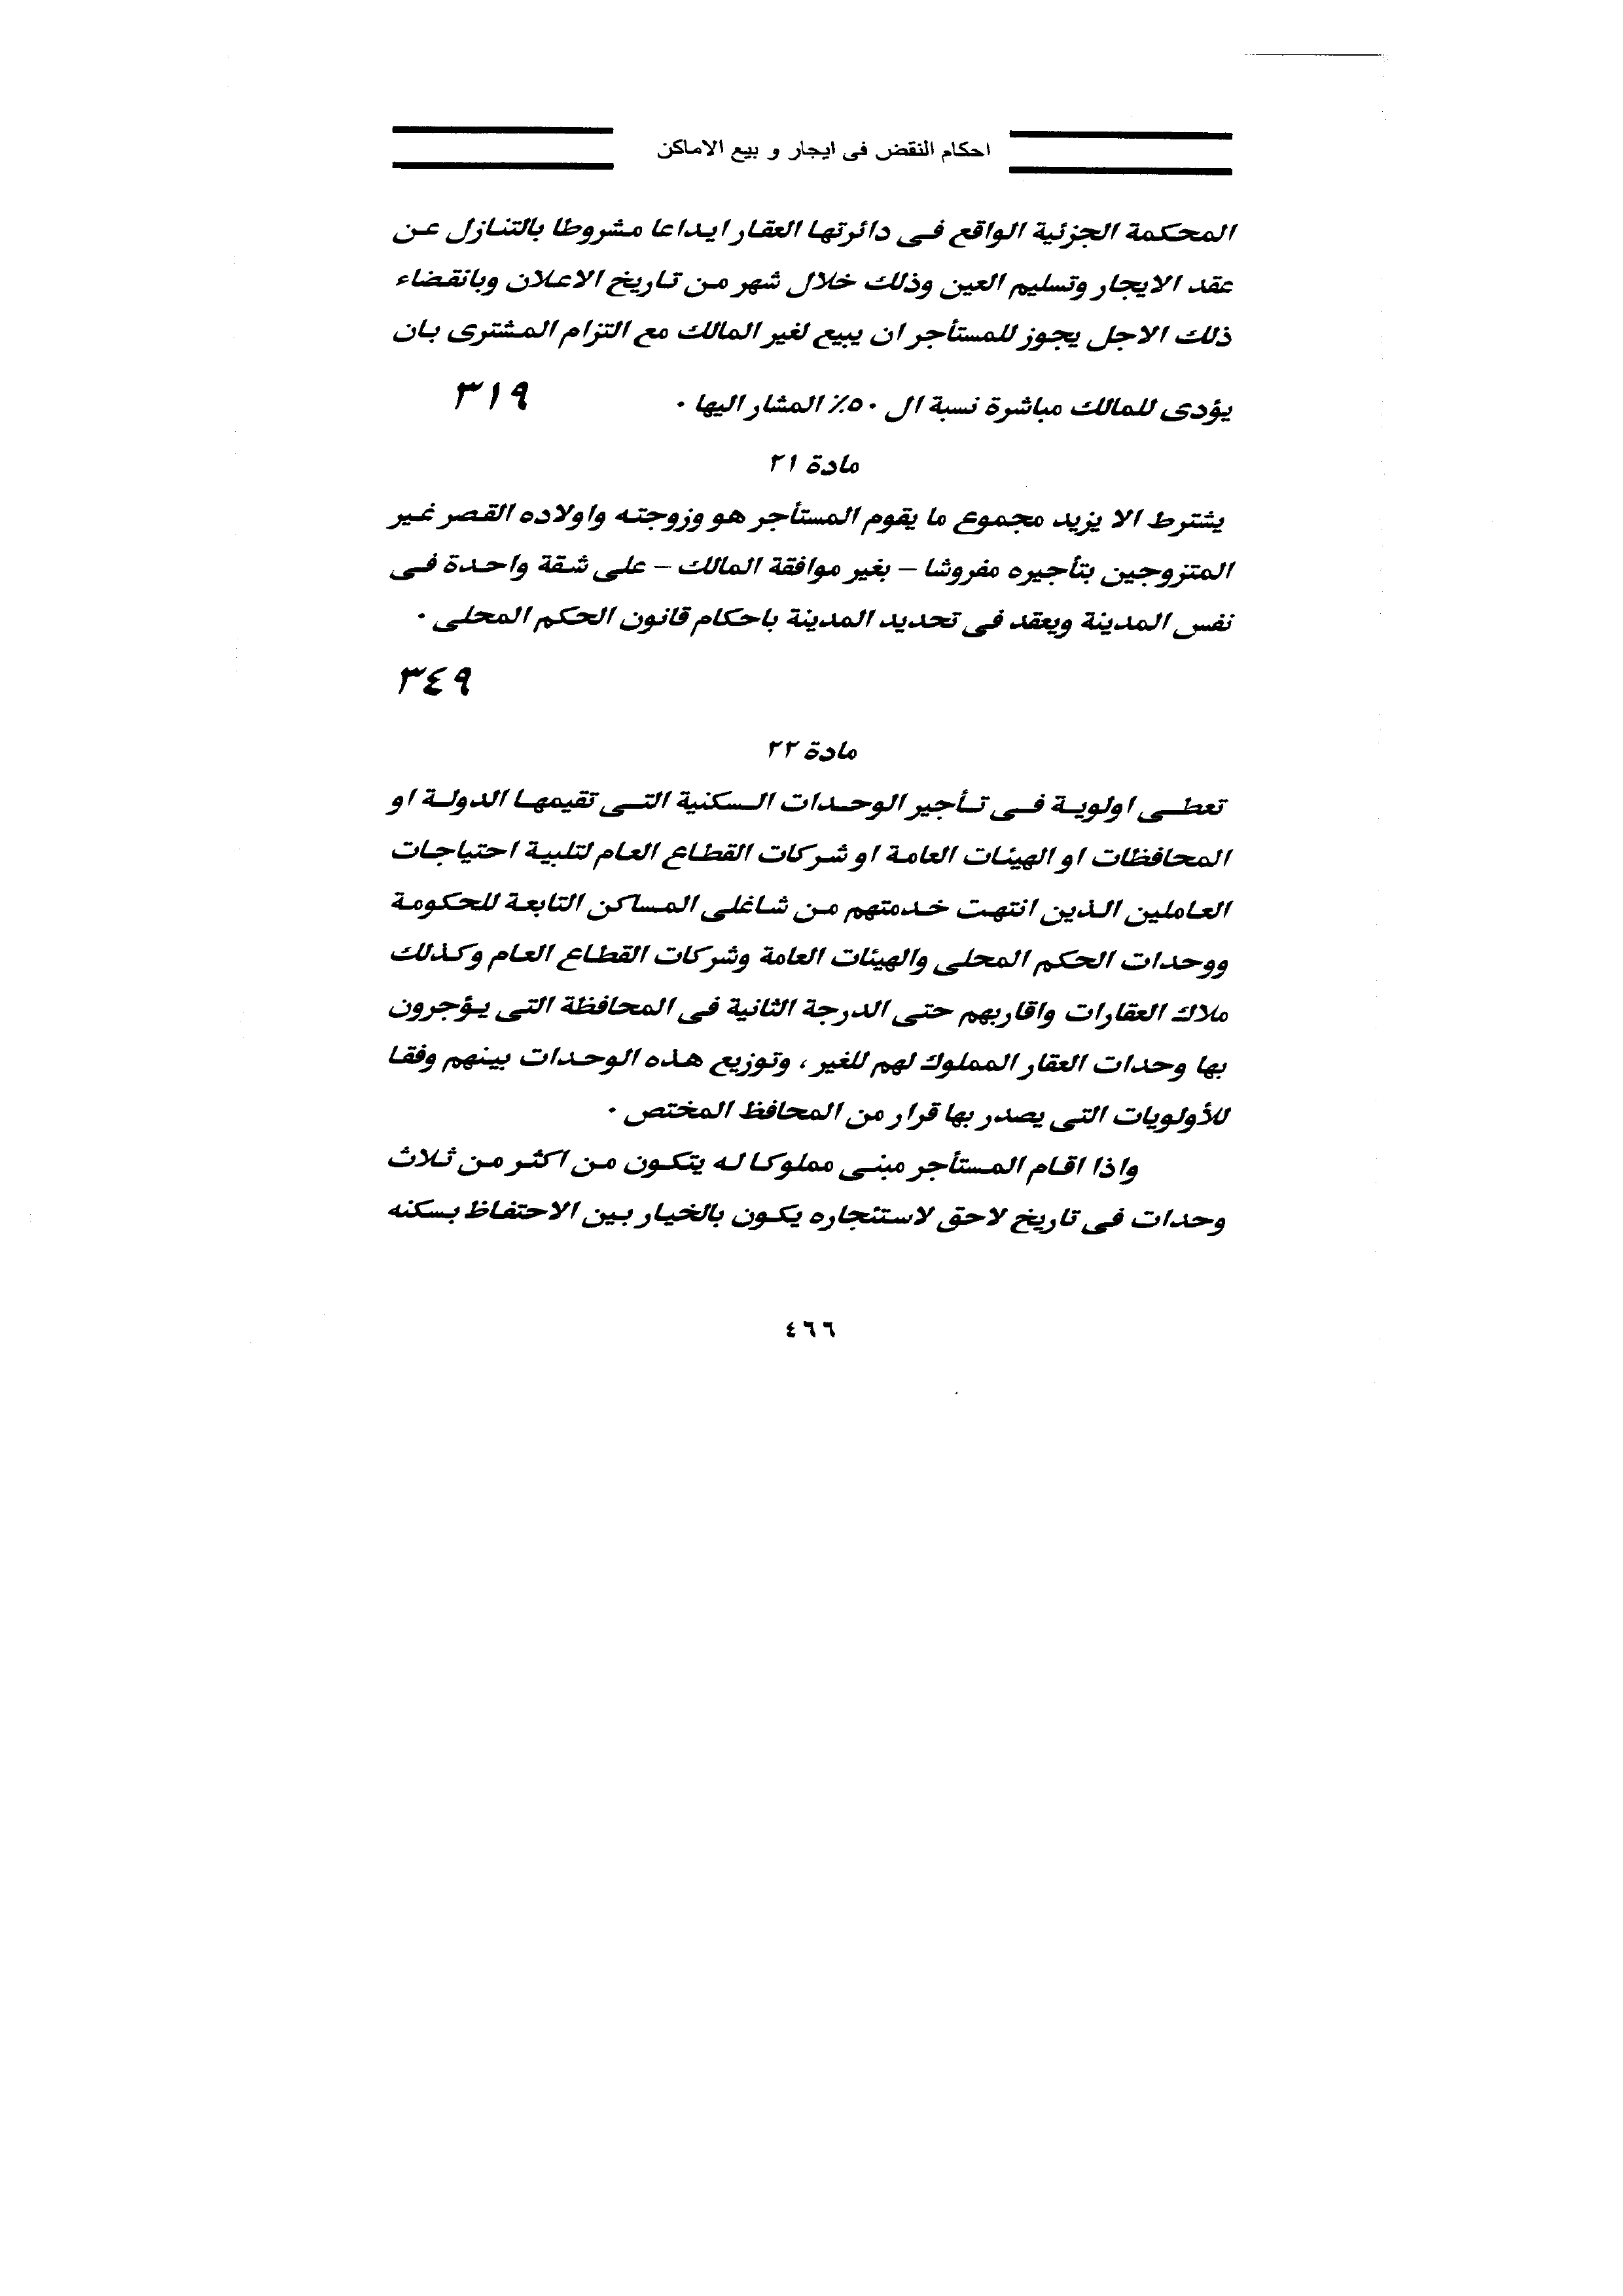 احكام النقض فى ايجار و بيع الاماكن
المحكمة الجزئية الواقع فى دائرتها العقار ايداعا مشروطا بالتنازل عن
عقد الايجار وتسليم العين وذلك خلال شهر من تاريخ الاعلان وبانقضاء
ذلك الاجل يجوز للمستأجر ان يبيع لغير المالك مع التزام المشترى بان
يؤدى للمالك مباشرة نسبة ال ٥٠٪ المشار اليها ٠ ٣١٩
مادة ٢١
يشترط الا يزيد مجموع ما يقوم المستأجر هو وزوجته واولاده القصر غير
المتزوجين بتأجيره مفروشا – بغير موافقة المالك – على شقة واحدة فى
نفس المدينة ويعقد فى تحديد المدينة باحكام قانون الحكم المحلى ٠
٣٤٩
مادة ٢٢
تعطى اولوية فى تأجير الوحدات السكنية التى تقيمها الدولة او
المحافظات او الهيئات العامة او شركات القطاع العام لتلبية احتياجات
العاملين الذين انتهت خدمتهم من شاغلى المساكن التابعة للحكومة
ووحدات الحكم المحلى والهيئات العامة وشركات القطاع العام وكذلك
ملاك العقارات واقاربهم حتى الدرجة الثانية فى المحافظة التى يؤجرون
بها وحدات العقار المملوك لهم للغير ، وتوزيع هذه الوحدات بينهم وفقا
للأولويات التى يصدر بها قرار من المحافظ المختص ٠
واذا اقام المستأجر مبنى مملوكا له يتكون من اكثر من ثلاث
وحدات فى تاريخ لاحق لاستئجاره يكون بالخيار بين الاحتفاظ بسكنه
٤٦٦